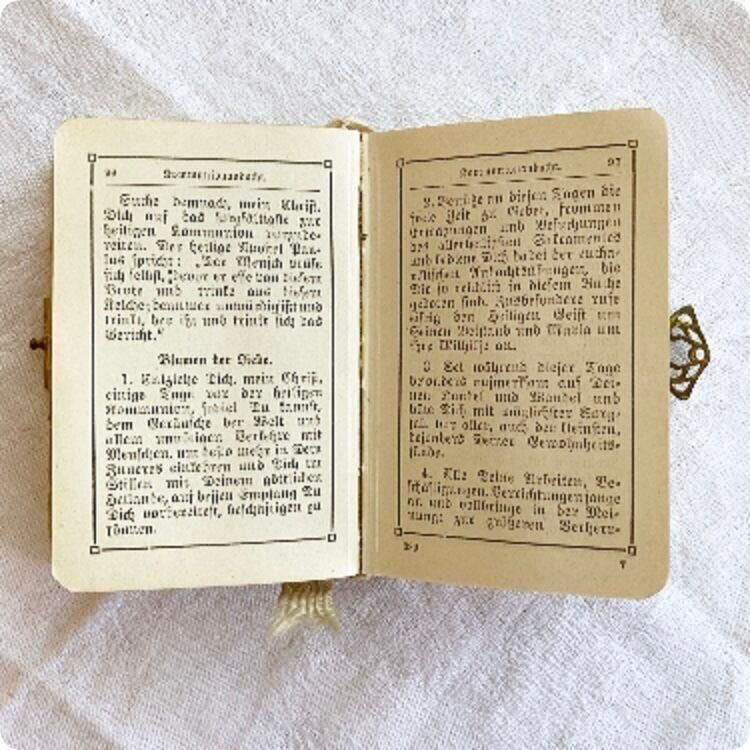 Kommunionandacht.
Suche demnach, mein Christ,
Dich auf das sorgfältigste zur
heiligen Kommunion vorzube-
reiten. Der heilige Apostel Pau-
lus spricht: „Der Mensch prüfe
sich selbst, bevor er esse von diesem
Brote und trinke aus diesem
Kelche; denn wer unwürdig ißt und
trinkt, der ißt und trinkt sich das
Gericht.“
Blumen der Liebe.
1. Entziehe Dich, mein Christ,
einige Tage vor der heiligen
Kommunion, soviel Du kannst,
dem Geräusche der Welt und
allem unnötigen Verkehre mit
Menschen, um desto mehr in Dein
Inneres einkehren und Dich im
Stillen mit Deinem göttlichen
Heilande, auf dessen Empfang Du
Dich vorbereitest, beschäftigen zu
können.
Kommunionandacht. 97
2. Benütze an diesen Tagen die
freie Zeit zu Gebet, frommen
Erwägungen und Besuchungen
des allerheiligsten Sakramentes
und bediene Dich dabei der eucha-
ristischen Andachtsübungen, die
Dir so reichlich in diesem Buche
geboten sind. Insbesondere rufe
den Heiligen Geist um
Seinen Beistand und Maria um
ihre Mithilfe an.
3. Sei während dieser Tage
besonders aufmerksam auf Dei-
nen Handel und Wandel und
hüte Dich mit möglichster Sorg-
falt vor allen, auch den kleinsten,
besonders Deiner Gewohnheits-
fehlern.
4. Alle Deine Arbeiten, Be-
schäftigungen, Verrichtungen fange
an und vollbringe in der Mei-
nung: zur größeren Verherr-
7